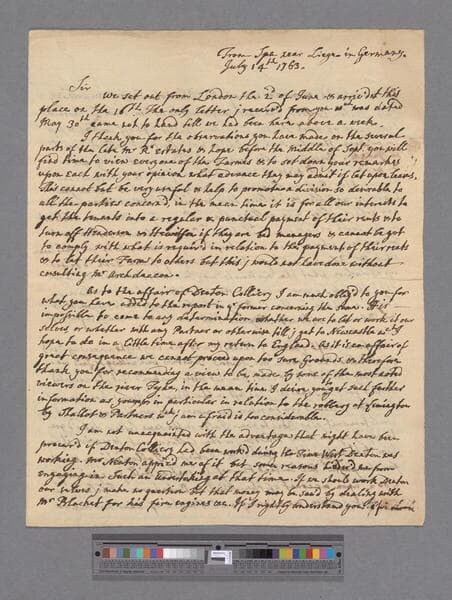 From Spa near Liege in Germany.
July 14th 1763.
Sir
We set out from London the 2d of June & arrived at this
place on the 16th. The only letter j received from you wch was dated
May 30th came not to hand till we had been here above a week.
I thank you for the observations you have made on the several
parts of the late Mr R's estates & hope before the middle of Sept. you will
find time to view every one of the Farms & to set down your remarks
upon each with your opinion what advance they may admit if let upon leases.
This cannot but be very useful & help to promote a division so desirable to
all the parties concern'd, in the mean time it is for all our interests to
get the tenants into a regular & punctual payment of their rents & to
turn off Henderson & Hewitson if they are bad managers & cannot be got
to comply with what is required in relation to the payment of their rents
& to let their Farms to others but this j would not have done without
consulting Mr Archdeacon.
As to the affair of Denton Colliery I am much oblig'd to you for
what you have added to the report in yr former concerning the same. It is
impossible to come to any determination whether we are to let or work it our
selves or whether with any Partner or otherwise till j get to Newcastle wch I
hope to do in a little time after my return to England. As it is an affair of
great consequence we cannot proceed upon too sure Grounds & therefore
thank you for recommending a view to be made by some of the most noted
viewers on the river Tyne, in the mean time I desire you'd get such further
information as you can in particular in relation to the robbery at Lemington
by Thallot & Partners wch j am afraid is too considerable.
I am not unacquainted with the advantages that might have been
procur'd if Denton Colliery had been worked during the time West Denton was
working. Mr Newton apprized me of it but some reasons hinder'd me from
engaging in such an undertaking at that time. If we should work Denton
our selves j make no question but that money may be said by dealing with
Mr Blacket for his fire engines &c. If I rightly understand you